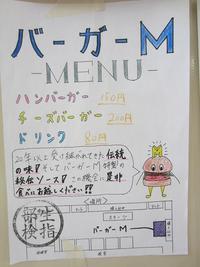 バーガーM
-MENU-
ハンバーガー 150円
チーズバーガー 200円
ドリンク 80円
20年以上受け継がれてきた伝統
の味!そしてバーガーM特製の
秘伝ソース!この機会に是非
食べにお越しください!!
バーガーM